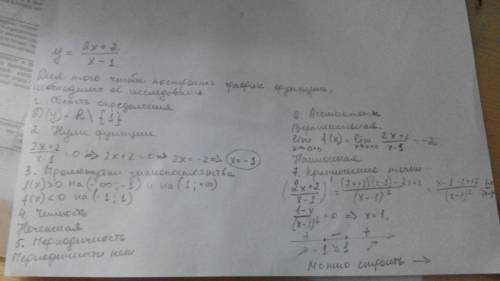 y = (2x+2)/(x-1)
Для того чтобы построить график функции,
необходимо её исследовать
1. Область определения
D(y) = R\{1}
2. Нули функции
(2x+2)/(x-1) = 0 => 2x+2=0 => 2x=-2 => x=-1
3. Промежутки знакопостоянства
f(x)>0 на (-∞;-1) и на (1;+∞)
f(x)<0 на (-1;1)
4. Чётность
Нечётная
5. Периодичность
Периодичности нет
Асимптоты
Вертикальная:
lim f(x) = lim (2x+2)/(x-1) = -2
Наклонная
7. Критические точки
((2x+2)/(x-1))' =
= 0 => x=1,
+ - +
-1 1
Можно строить →